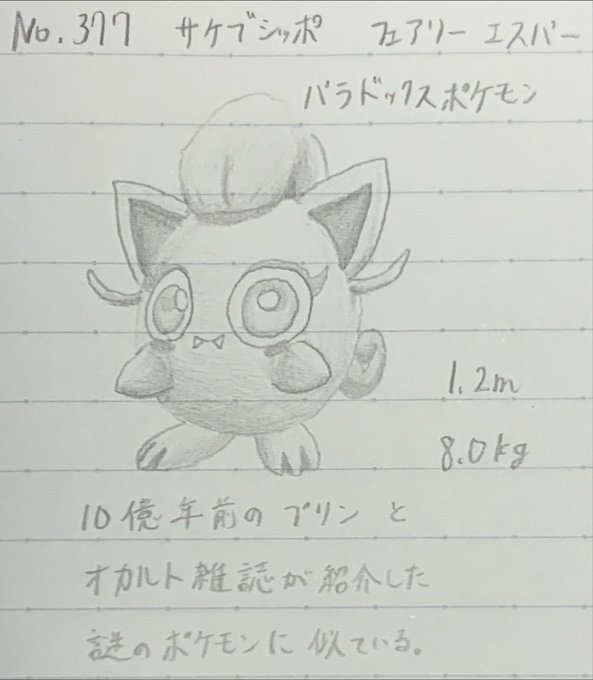 No.377 サケブシッポ フェアリー エスパー
パラドックスポケモン
1.2m
8.0kg
10億年前のプリンと
オカルト雑誌が紹介した
謎のポケモンに似ている。